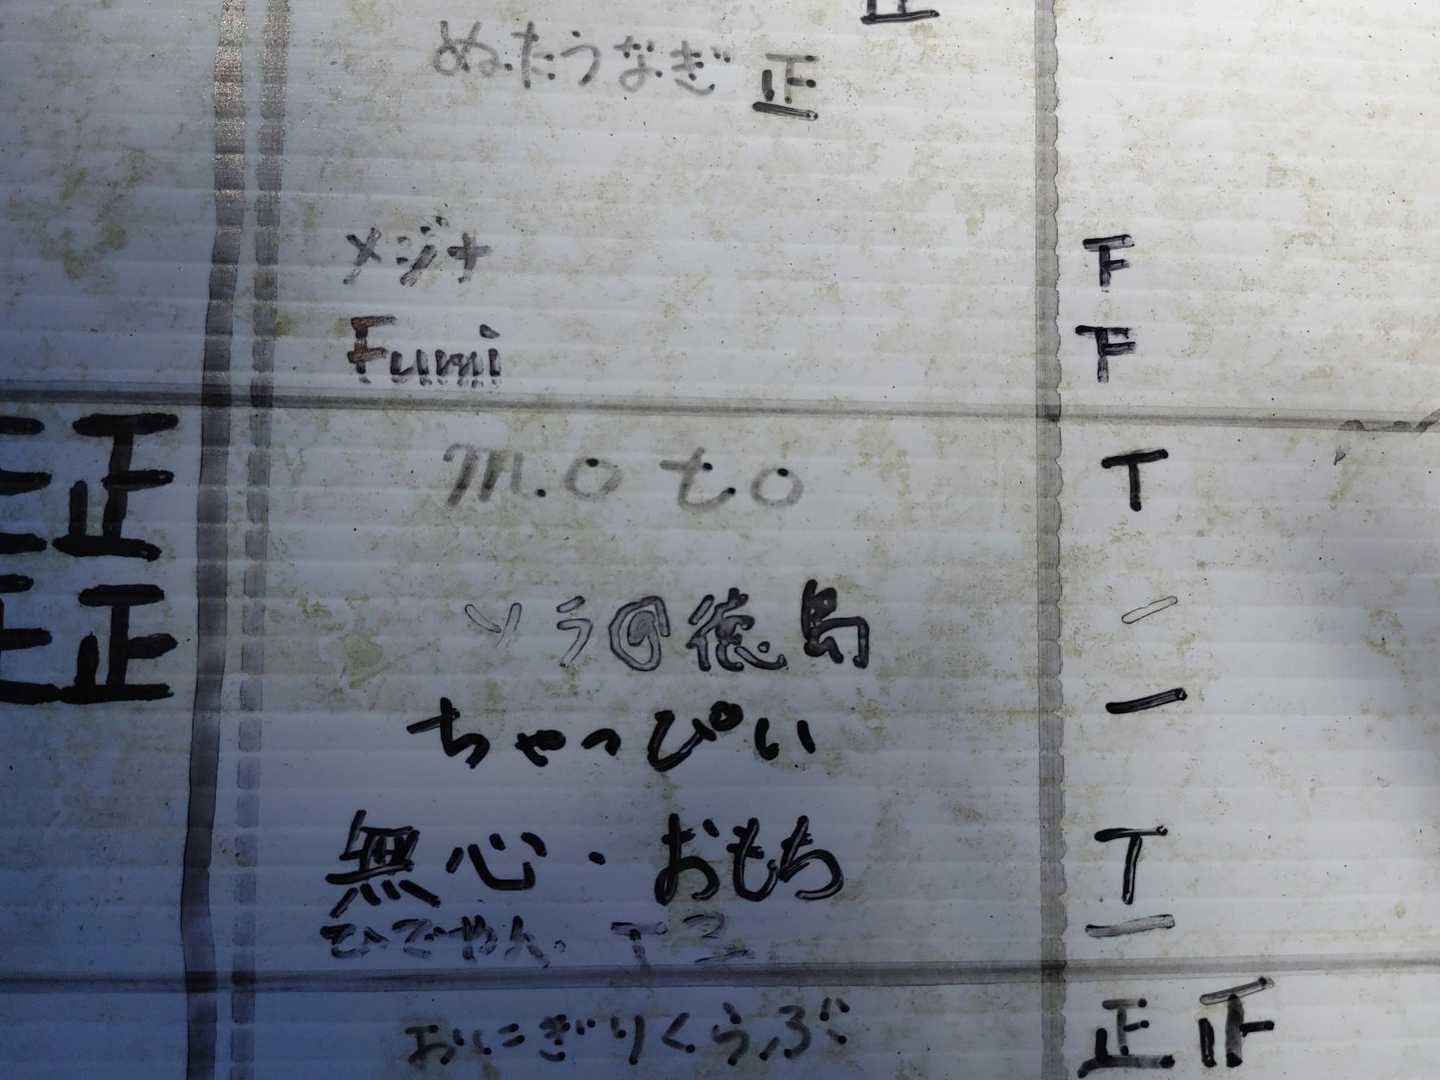 正
ぬたうなぎ 正
メジナ 下
Fumi 下
正 正 m.oto 丅
ソラ@徳島 一
正 正 ちゃっぴい 一
無心・おもち 丅
ひでやん. 一
おにぎりくらぶ 正 正